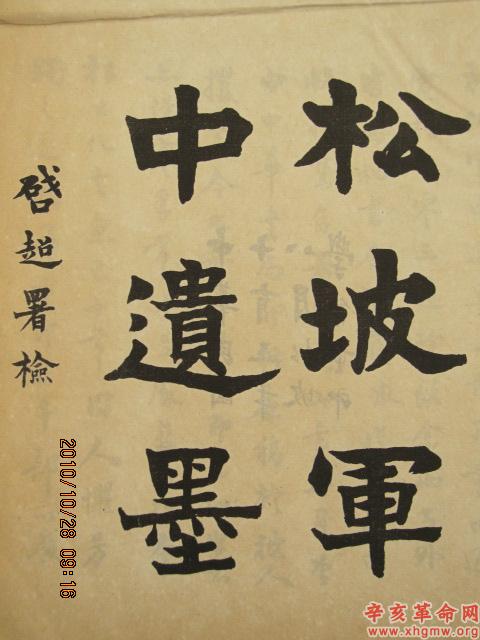 松坡軍
中遺墨
啓超署檢
2010/10/28 09:16
辛亥革命网
www.xhgmw.org